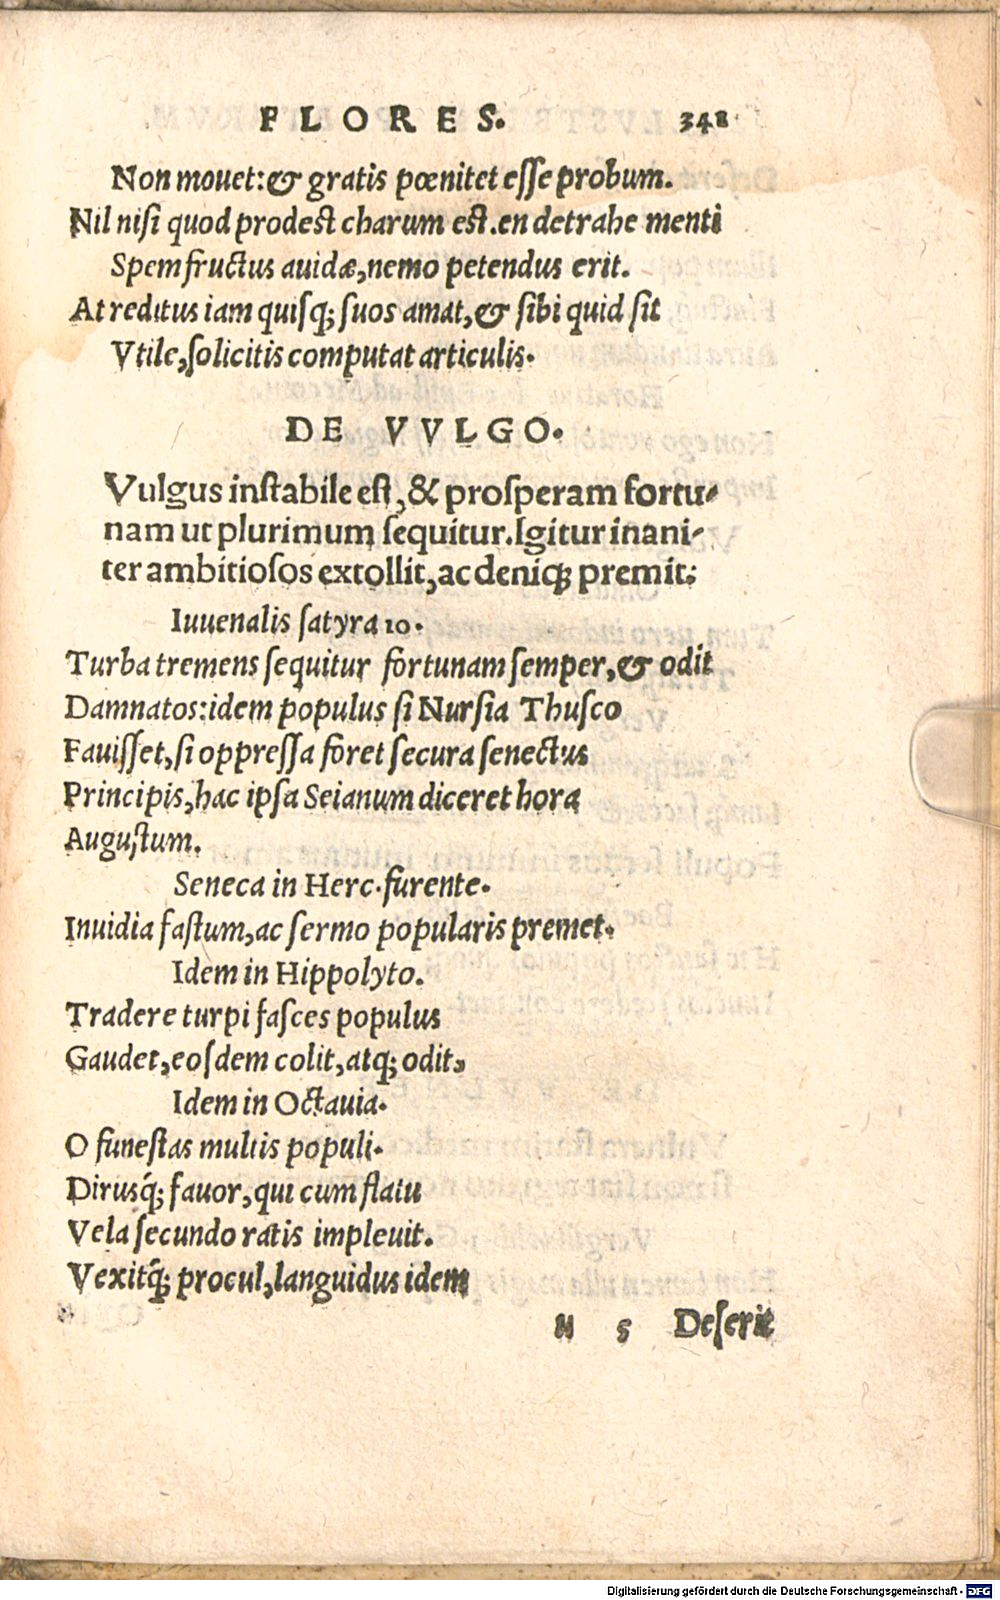 FLORES. 348
Non mouet: & gratis pœnitet esse probum.
Nil nisi quod prodest charum est. en detrahe menti
Spem fructus auidæ, nemo petendus erit.
At reditus iam quisq; suos amat, & sibi quid sit
Vtile, solicitis computat articulis.
DE VVLGO.
Vulgus instabile est, & prosperam fortu-
nam ut plurimum sequitur. Igitur inani-
ter ambitiosos extollit, ac deniq; premit:
Iuuenalis satyra 10.
Turba tremens sequitur fortunam semper, & odit
Damnatos: idem populus si Nursia Thusco
Fauisset, si oppressa foret secura senectus
Principis, hac ipsa Seianum diceret hora
Augustum.
Seneca in Herc. furente.
Inuidia fastum, ac sermo popularis premet.
Idem in Hippolyto.
Tradere turpi fasces populus
Gaudet, eosdem colit, atq; odit,
Idem in Octauia.
O funestas multis populi.
Dirusq́; fauor, qui cum flatu
Vela secundo ratis impleuit.
Vexitq́; procul, languidus idem
5 Deserit
Digitalisierung gefördert durch die Deutsche Forschungsgemeinschaft - DFG